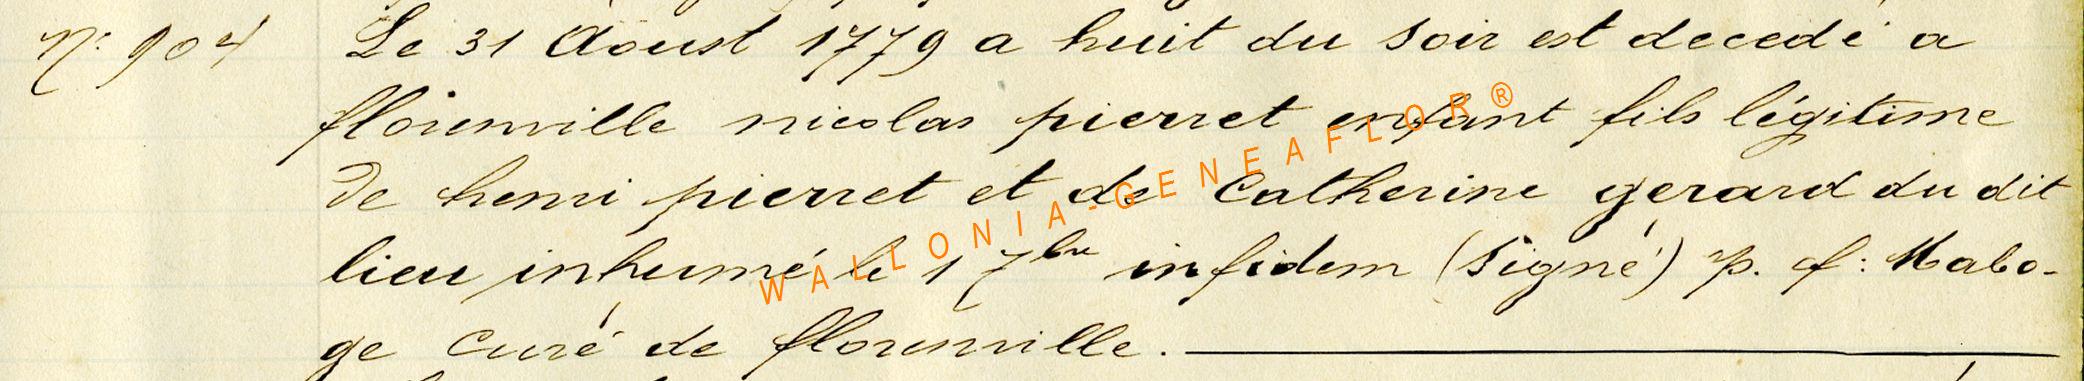 N: 904 Le 31 Aoust 1779 a huit du soir est decedé a
florenville nicolas pierret enfant fils légitime
de henri pierret et de Catherine gerard du dit
lieu inhumé le 1 7bre in fidem (signé) p. f: Mabo-
ge Curé de florenville.
WALLONIA-GENEAFLOR®